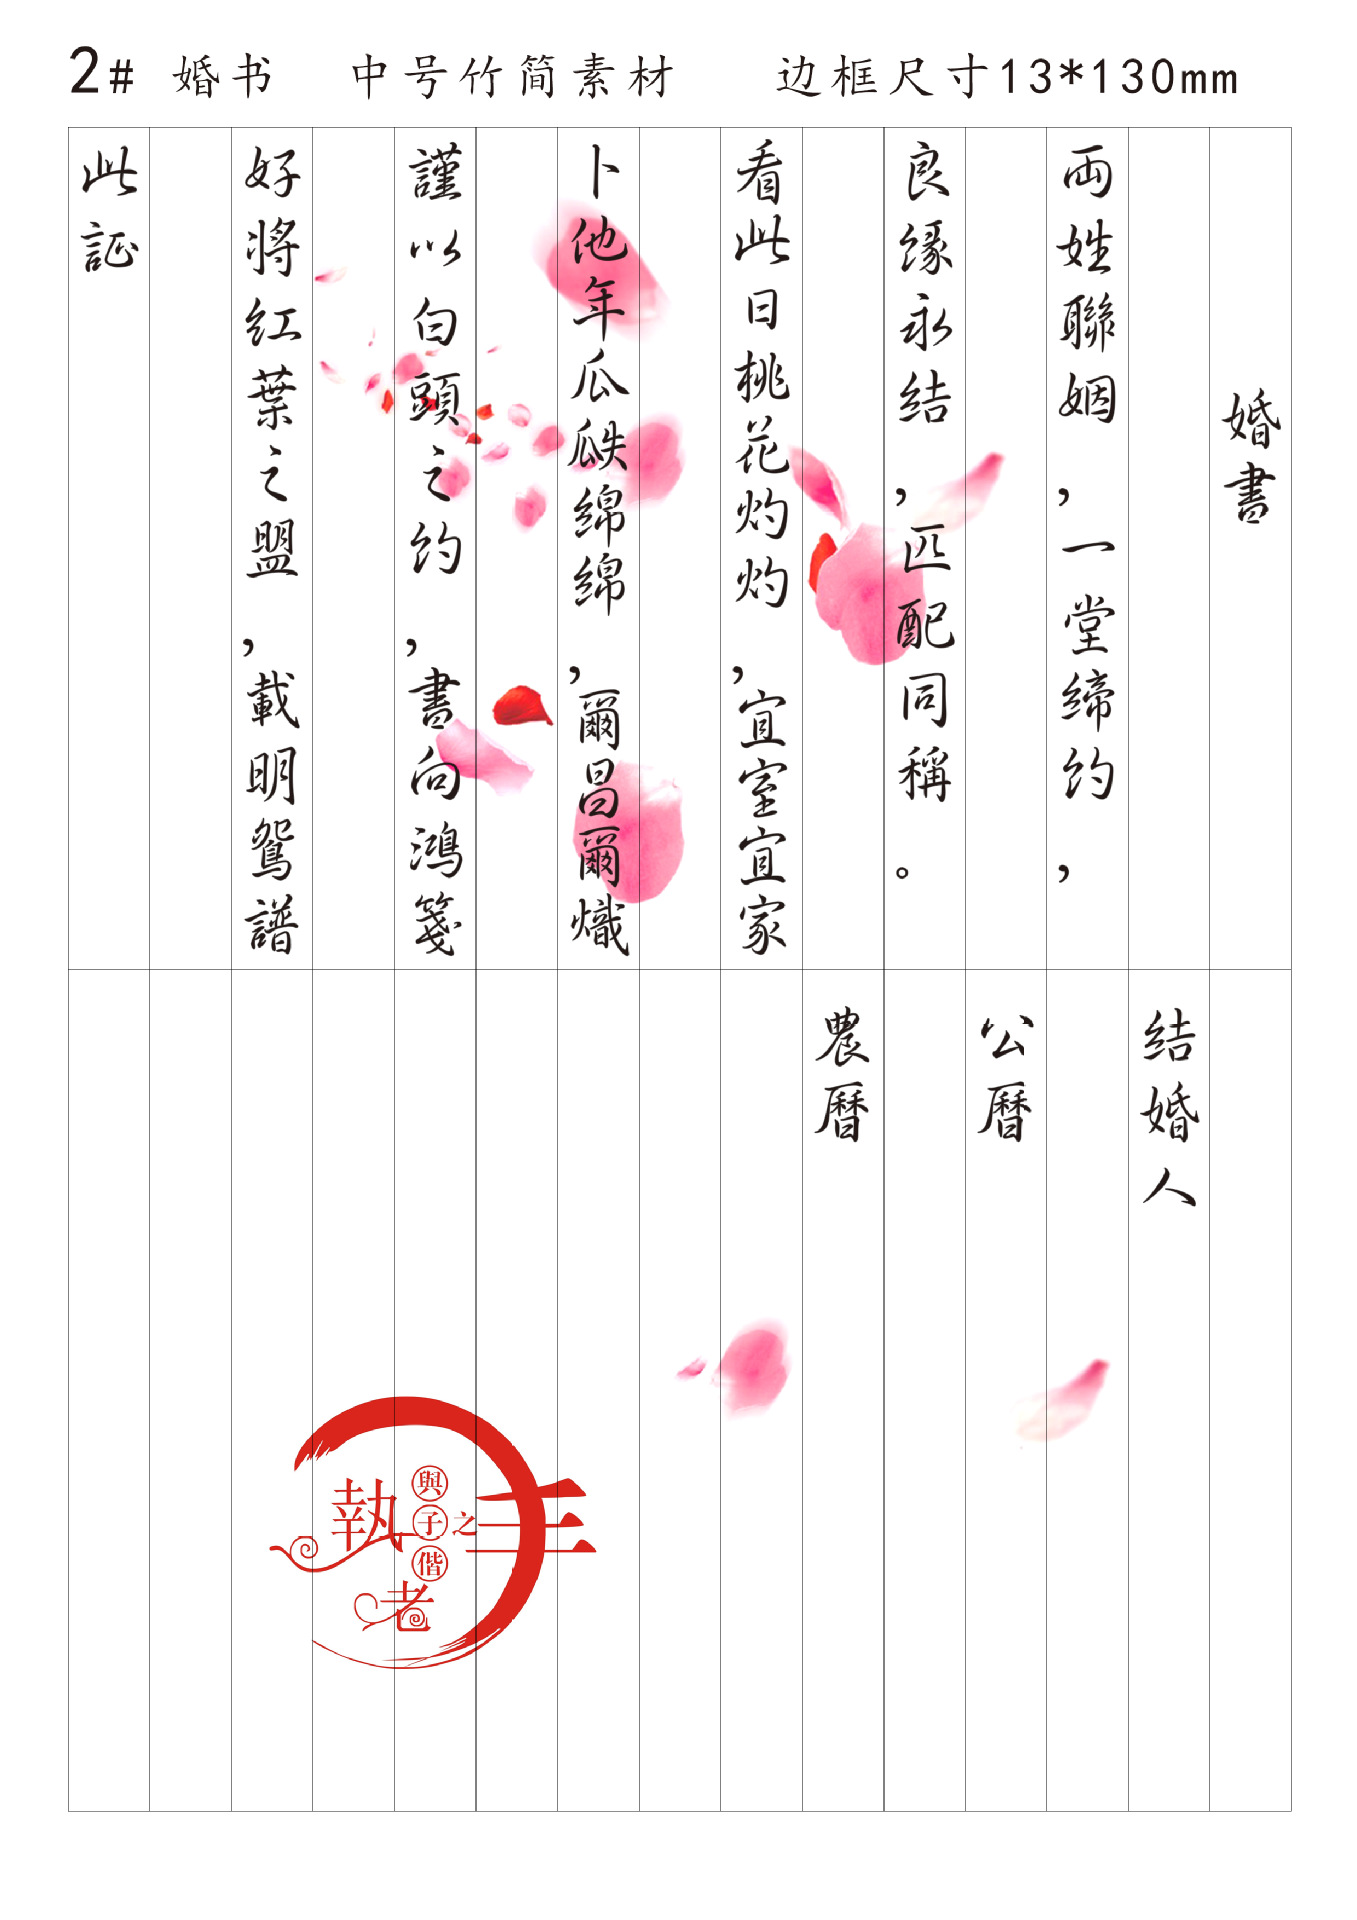 2# 婚书 中号竹简素材 边框尺寸13*130mm
婚書
両姓聯姻，一堂缔约，
良缘永结，匹配同稱。
看此日桃花灼灼，宜室宜家
卜他年瓜瓞绵绵，爾昌爾熾
謹以白頭之约，書向鴻箋
好将红葉之盟，載明鴛譜
此証
结婚人
公曆
農曆
執子之手
與子偕老